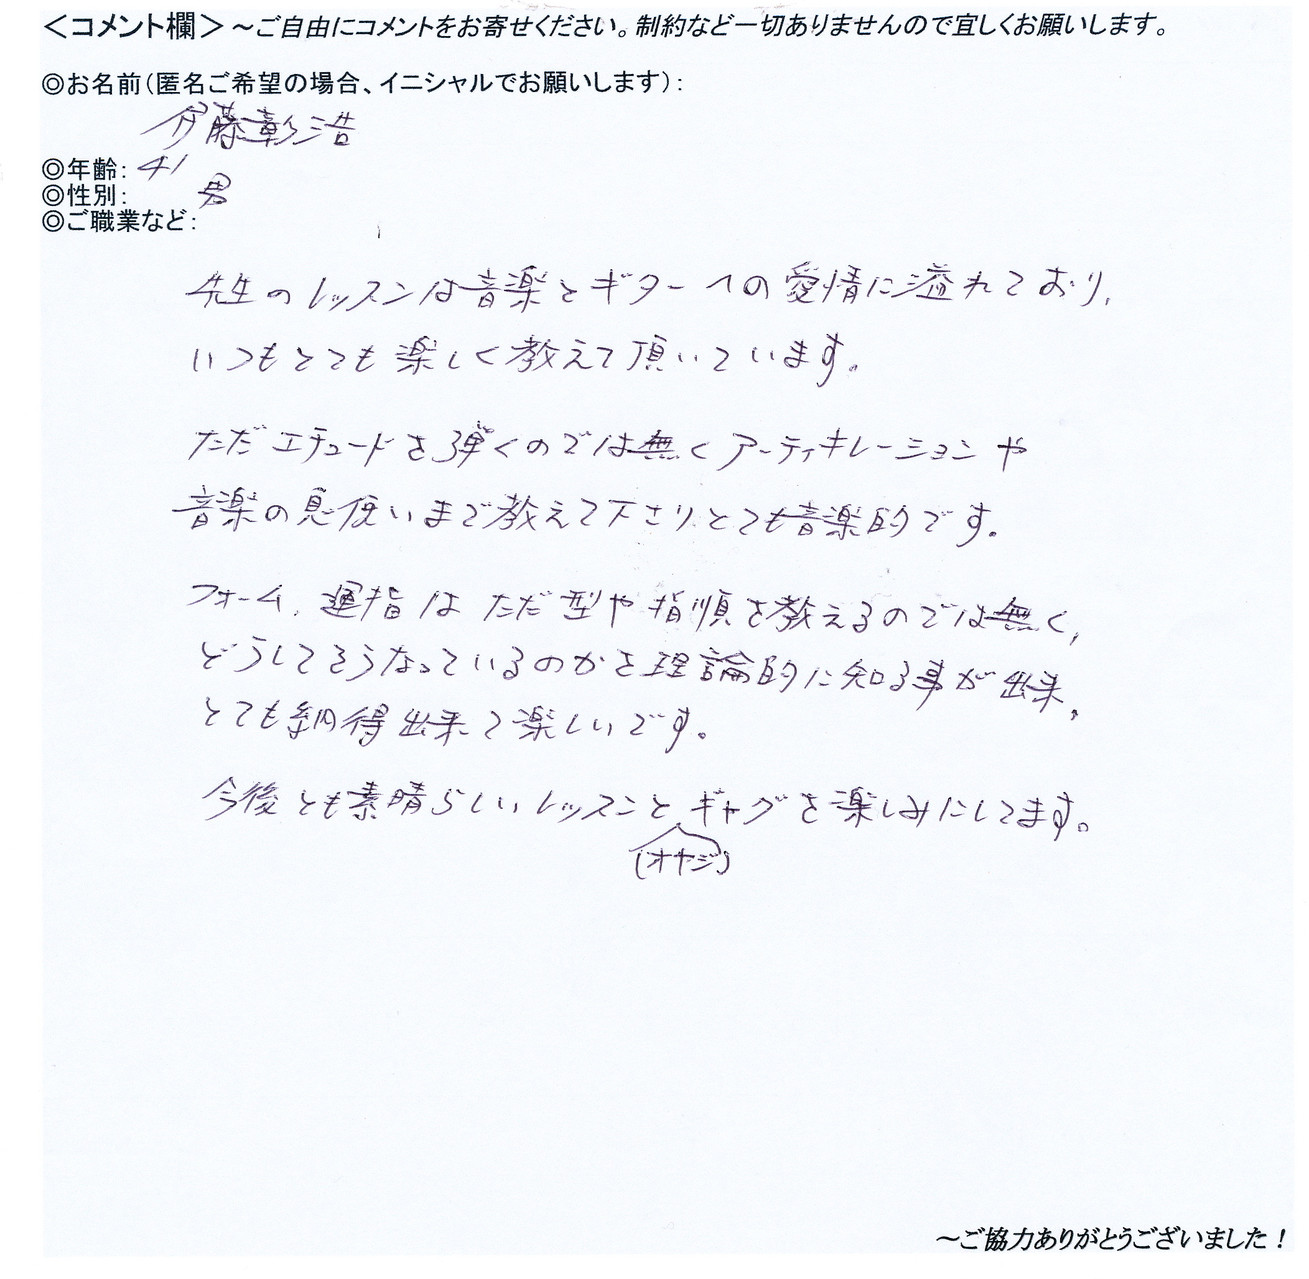 ＜コメント欄＞～ご自由にコメントをお寄せください。制約など一切ありませんので宜しくお願いします。
◎お名前（匿名ご希望の場合、イニシャルでお願いします）：
伊藤彰浩
◎年齢：41
◎性別：男
◎ご職業など：
先生のレッスンは音楽とギターへの愛情に溢れており、
いつもとても楽しく教えて頂いています。
ただエチュードを弾くのでは無くアーティキレーションや
音楽の息使いまで教えて下さり、とても音楽的です。
フォーム、運指はただ型や指順を教えるのでは無く、
どうしてそうなっているのかを理論的に知る事が出来、
とても納得出来て楽しいです。
今後とも素晴らしいレッスンとギャグを楽しみにしてます。
(オヤジ)
～ご協力ありがとうございました！